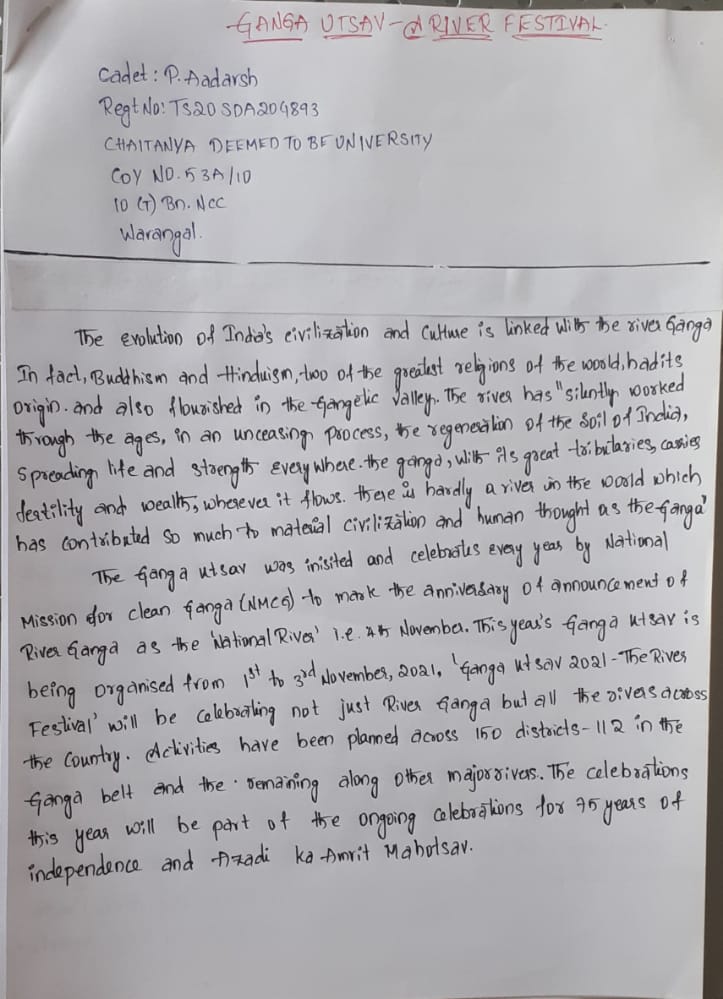 GANGA UTSAV - A RIVER FESTIVAL.
Cadet : P. Aadarsh
Regt No: TS20SDA204893
CHAITANYA DEEMED TO BE UNIVERSITY
COY NO. 53A/10
10 (T) Bn. NCC
Warangal.
The evolution of India's civilization and culture is linked with the river Ganga
In fact, Buddhism and Hinduism, two of the greatest religions of the world, had its
origin. and also flourished in the Gangetic Valley. The river has "silently worked
through the ages, in an unceasing process, the regeneration of the soil of India,
spreading life and strength everywhere. the ganga, with its great tributaries, carries
fertility and wealth, wherever it flows. there is hardly a river in the world which
has contributed so much to material civilization and human thought as the Ganga'
The Ganga utsav was inisited and celebrates every year by National
Mission for clean Ganga (NMCG) to mark the anniversary of announcement of
River Ganga as the 'National River' i.e. 4th November. This year's Ganga utsav is
being organised from 1st to 3rd November, 2021, 'Ganga utsav 2021 - The Rivers
Festival' will be celebrating not just River Ganga but all the rivers across
the country. Activities have been planned across 150 districts - 112 in the
Ganga belt and the remaining along other major rivers. The celebrations
this year will be part of the ongoing celebrations for 75 years of
independence and Azadi ka Amrit Mahotsav.